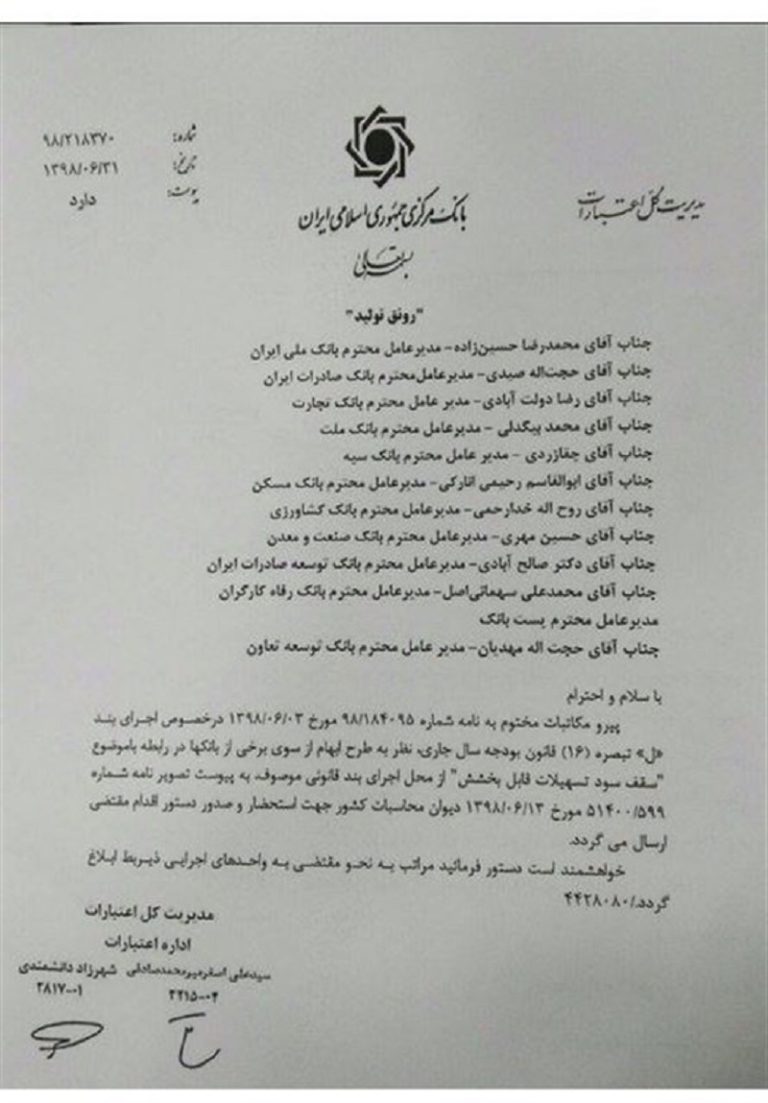 شماره: ۹۸/۲۱۸۳۷۰
تاریخ: ۱۳۹۸/۰۶/۳۱
پیوست: دارد
مدیریت کل اعتبارات
بانک مرکزی جمهوری اسلامی ایران
بسمه تعالی
"رونق تولید"
جناب آقای محمدرضا حسین‌زاده- مدیرعامل محترم بانک ملی ایران
جناب آقای حجت‌اله صیدی- مدیرعامل‌محترم بانک صادرات ایران
جناب آقای رضا دولت آبادی- مدیر عامل محترم بانک تجارت
جناب آقای محمد بیگدلی - مدیرعامل محترم بانک ملت
جناب آقای چقازردی - مدیر عامل محترم بانک سپه
جناب آقای ابوالقاسم رحیمی انارکی- مدیرعامل محترم بانک مسکن
جناب آقای روح اله خدارحمی- مدیرعامل محترم بانک کشاورزی
جناب آقای حسین مهری- مدیرعامل محترم بانک صنعت و معدن
جناب آقای دکتر صالح آبادی- مدیرعامل محترم بانک توسعه صادرات ایران
جناب آقای محمدعلی سهمانی‌اصل- مدیرعامل محترم بانک رفاه کارگران
مدیرعامل محترم پست بانک
جناب آقای حجت اله مهدیان- مدیر عامل محترم بانک توسعه تعاون
با سلام و احترام
پیرو مکاتبات مختوم به نامه شماره ۹۸/۱۸۴۰۹۵ مورخ ۱۳۹۸/۰۶/۰۳ درخصوص اجرای بند
«ل» تبصره (۱۶) قانون بودجه سال جاری، نظر به طرح ابهام از سوی برخی از بانکها در رابطه باموضوع
"سقف سود تسهیلات قابل بخشش" از محل اجرای بند قانونی موصوف، به پیوست تصویر نامه شماره
۵۱۴۰۰/۵۹۹ مورخ ۱۳۹۸/۰۶/۱۳ دیوان محاسبات کشور جهت استحضار و صدور دستور اقدام مقتضی
ارسال می گردد.
خواهشمند است دستور فرمائید مراتب به نحو مقتضی به واحدهای اجرایی ذیربط ابلاغ
گردد./۴۴۲۸۰۸۰
مدیریت کل اعتبارات
اداره اعتبارات
سیدعلی اصغرمیرمحمدصادقی شهرزاد دانشمندی
۲۲۱۵-۰۴ ۲۸۱۷-۰۱